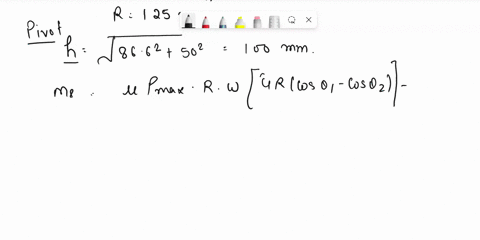 Pivot R = 125
h = √86.6² + 50² = 100 mm.
M_f = μ Pmax · R · w [4R (cos θ₁ - cos θ₂)] -